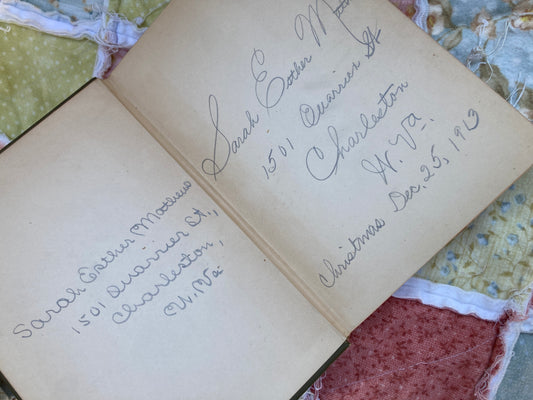 Sarah Esther Matthews
1501 Quarrier St.,
Charleston,
W. Va.
Sarah Esther
1501 Quarrier St
Charleston
W. Va.
Christmas Dec. 25, 1913